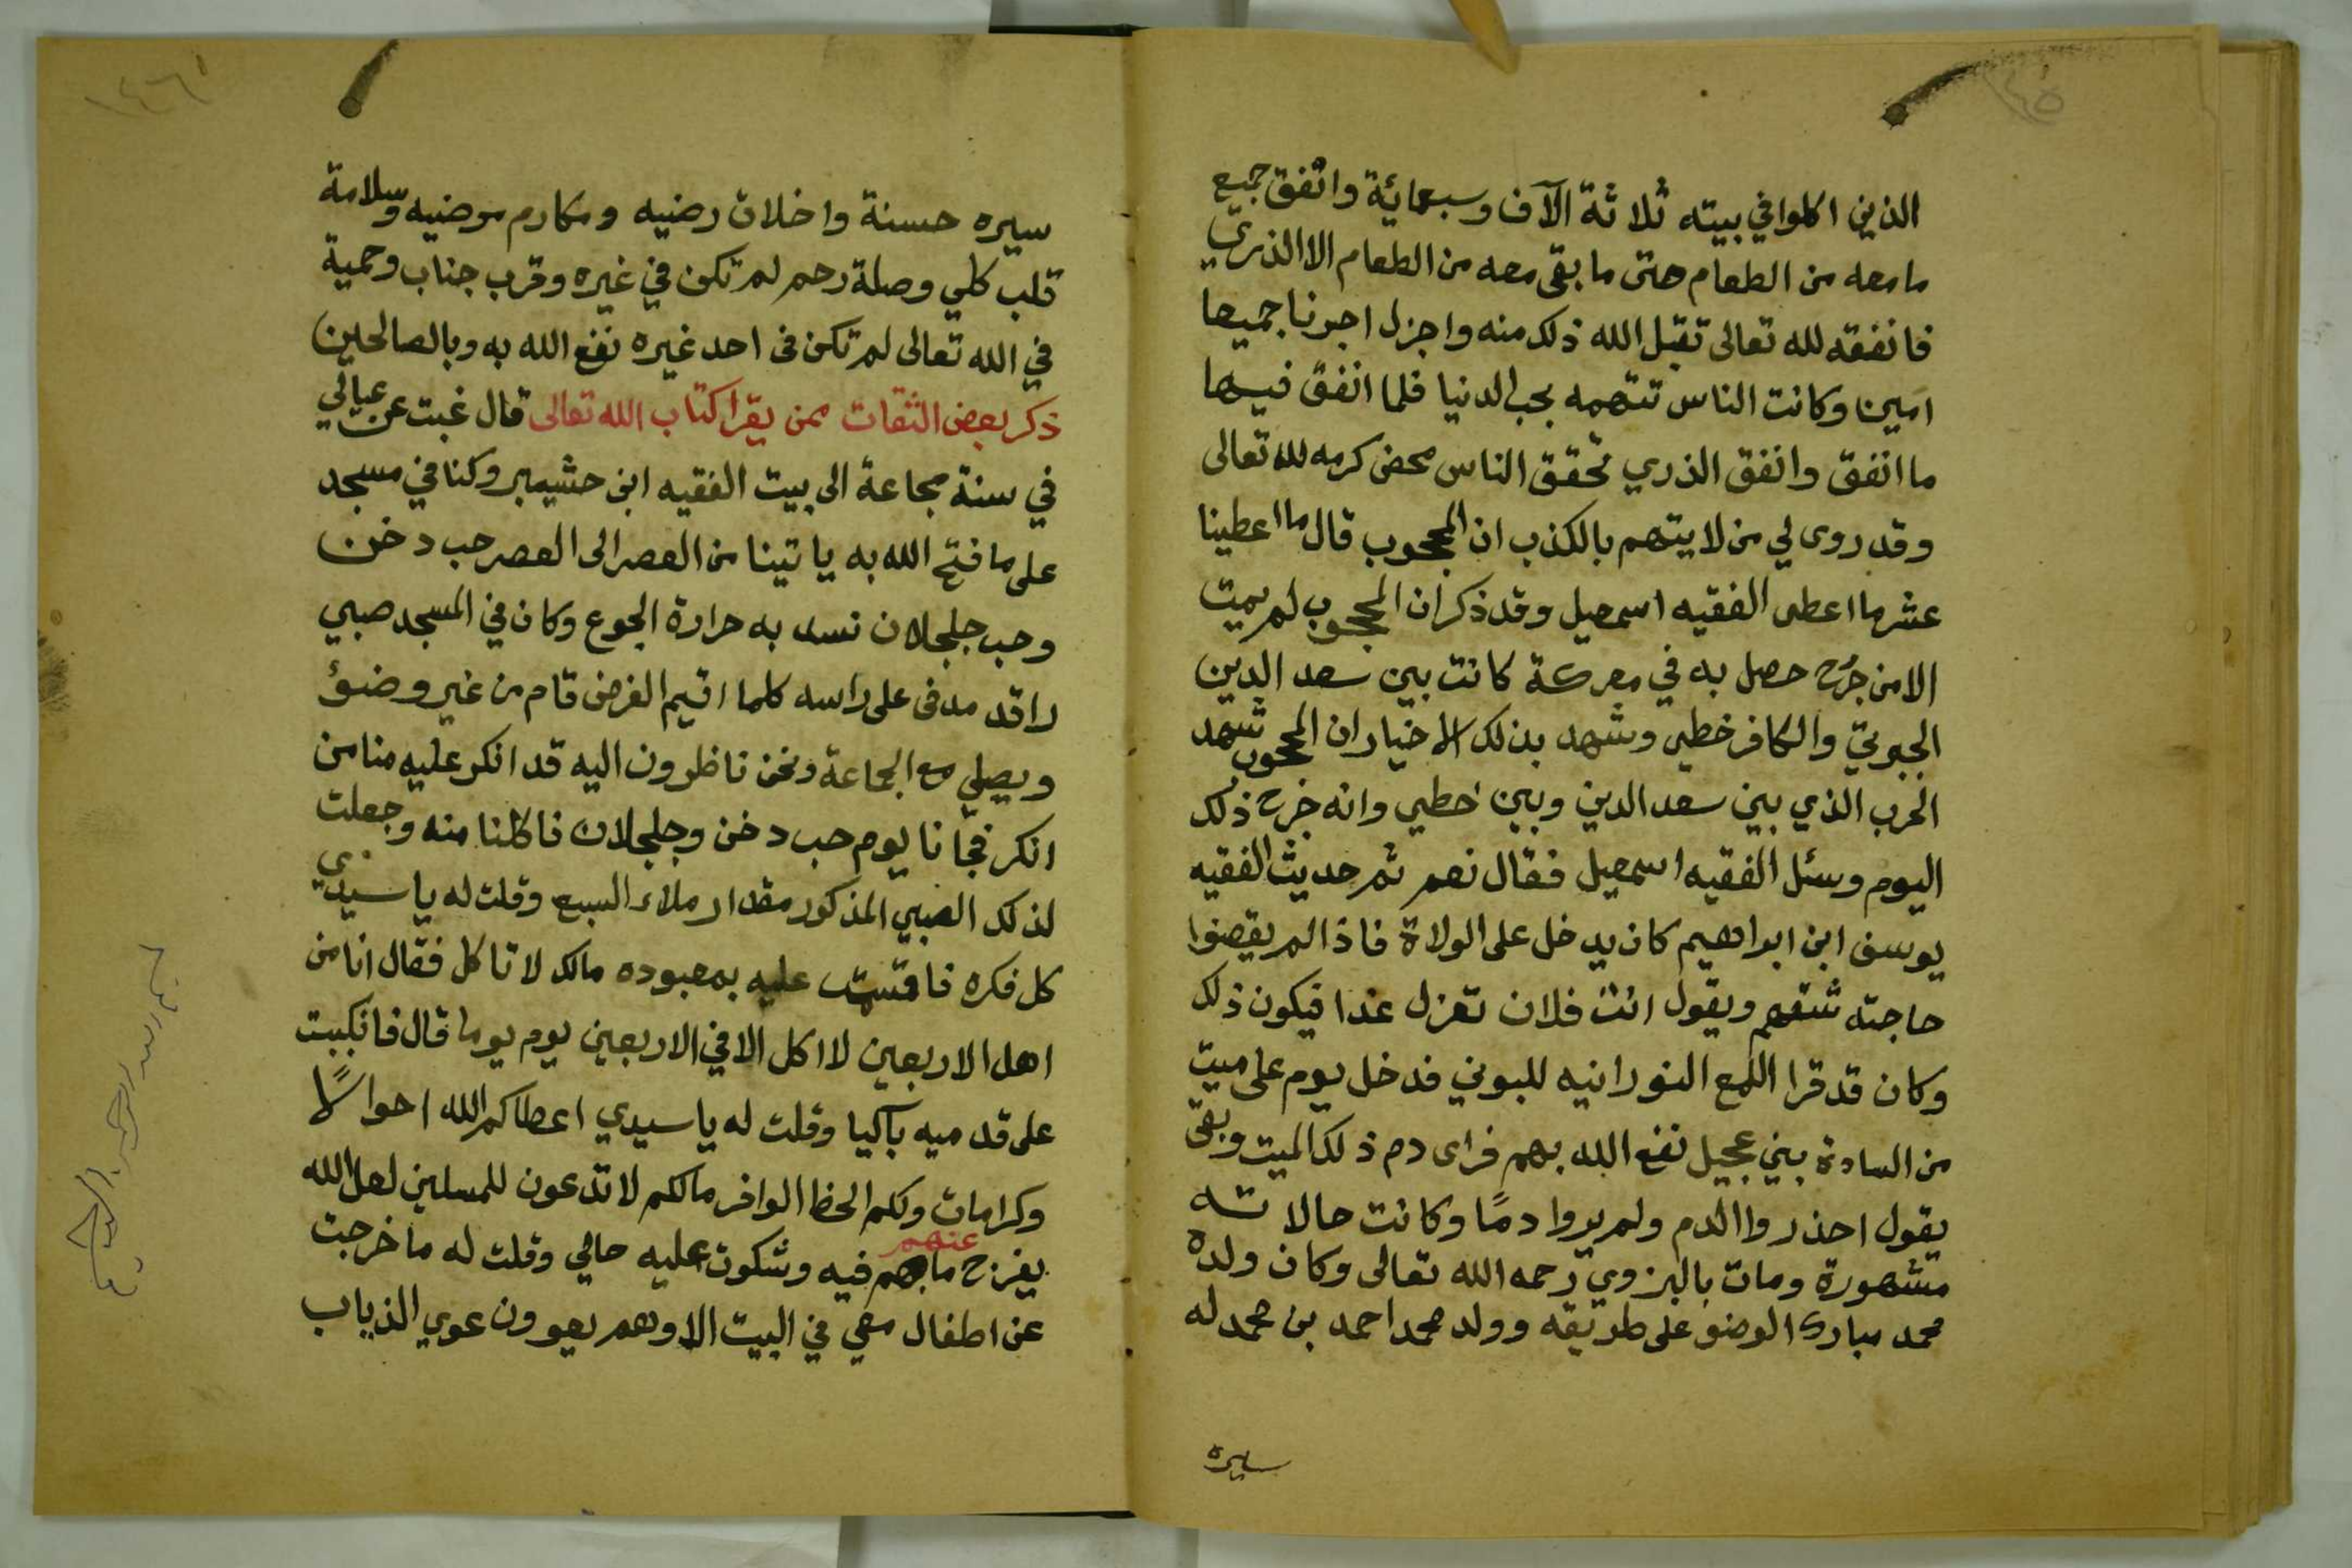 ١٤٥
الذين اكلوا في بيته ثلاثة الآف وسبعمائة وانفق جميع
ما معه من الطعام حتى ما بقى معه من الطعام الا الذري
فانفقه لله تعالى تقبل الله ذلك منه واجزل اجرنا جميعا
امين وكانت الناس تتهمه بحب الدنيا فلما انفق فيها
ما انفق وانفق الذري تحقق الناس محض كرمه لله تعالى
وقد روى لي من لا يتهم بالكذب ان المحجوب قال ما اعطينا
عشر ما اعطى الفقيه اسمعيل وقد ذكر ان المحجوب لم يمت
الا من جرح حصل به في معركة كانت بين سعد الدين
الجبرتي والكافر خطي وشهد بذلك الاخيار ان المحجوب شهد
الحرب الذي بين سعد الدين وبين خطي وانه جرح ذلك
اليوم وسئل الفقيه اسمعيل فقال نعم ثم حديث الفقيه
يوسف ابن ابراهيم كان يدخل على الولاة فاذا لم يقضوا
حاجته شتمهم ويقول انت فلان تعزل غدا فيكون ذلك
وكان قد قرا اللمع النورانيه للبوني فدخل يوم على ميت
من السادة بني عجيل نفع الله بهم فراى دم ذلك الميت وبقى
يقول احذروا الدم ولم يروا دمًا وكانت حالاته
مشهورة ومات بالبزوي رحمه الله تعالى وكان ولده
محمد مبارك الوضو على طريقه وولد محمد احمد بن محمد له
سيره
١٤٦
سيره حسنة واخلاق رضيه ومكارم مرضيه وسلامة
قلب كلي وصلة رحم لم تكن في غيره وقرب جناب وحمية
في الله تعالى لم تكن فى احد غيره نفع الله به وبالصالحين
ذكر بعض الثقات ممن يقرا كتاب الله تعالى قال غبت عن عيالي
في سنة مجاعة الى بيت الفقيه ابن حشيبر وكنا في مسجد
على ما فتح الله به ياتينا من العصر الى العصر حب دخن
وحب جلجلان نسد به حرارة الجوع وكان في المسجد صبي
راقد مدفى على راسه كلما اقيم الفرض قام من غير وضؤ
ويصلي مع الجماعة ونحن ناظرون اليه قد انكر عليه منا من
انكر فجانا يوم حب دخن وجلجلان فاكلنا منه وجعلت
لذلك الصبي المذكور مقدار ملاء السبع وقلت له يا سيدي
كل فكره فاقسمت عليه بمعبوده مالك لا تاكل فقال انا من
اهل الاربعين لا اكل الا في الاربعين يوم يوما قال فانكببت
على قدميه باكيا وقلت له يا سيدي اعطاكم الله احوالًا
وكرامات ولكم الحظ الوافر مالكم لا تدعون للمسلمين لعل الله
يفرج عنهم ما هم فيه وشكوت عليه حالي وقلت له ما خرجت
عن اطفال معي في البيت الا وهم يعوون عوي الذياب
بسم الله الرحمن الرحيم